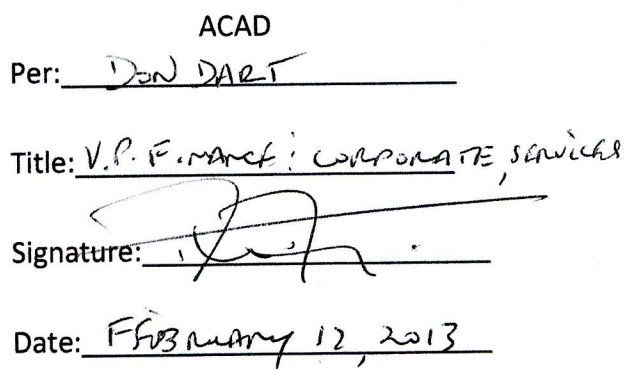 ACAD
Per: DON DART
Title: V.P. FINANCE : CORPORATE SERVICES
Signature:
Date: FEBRUARY 12, 2013